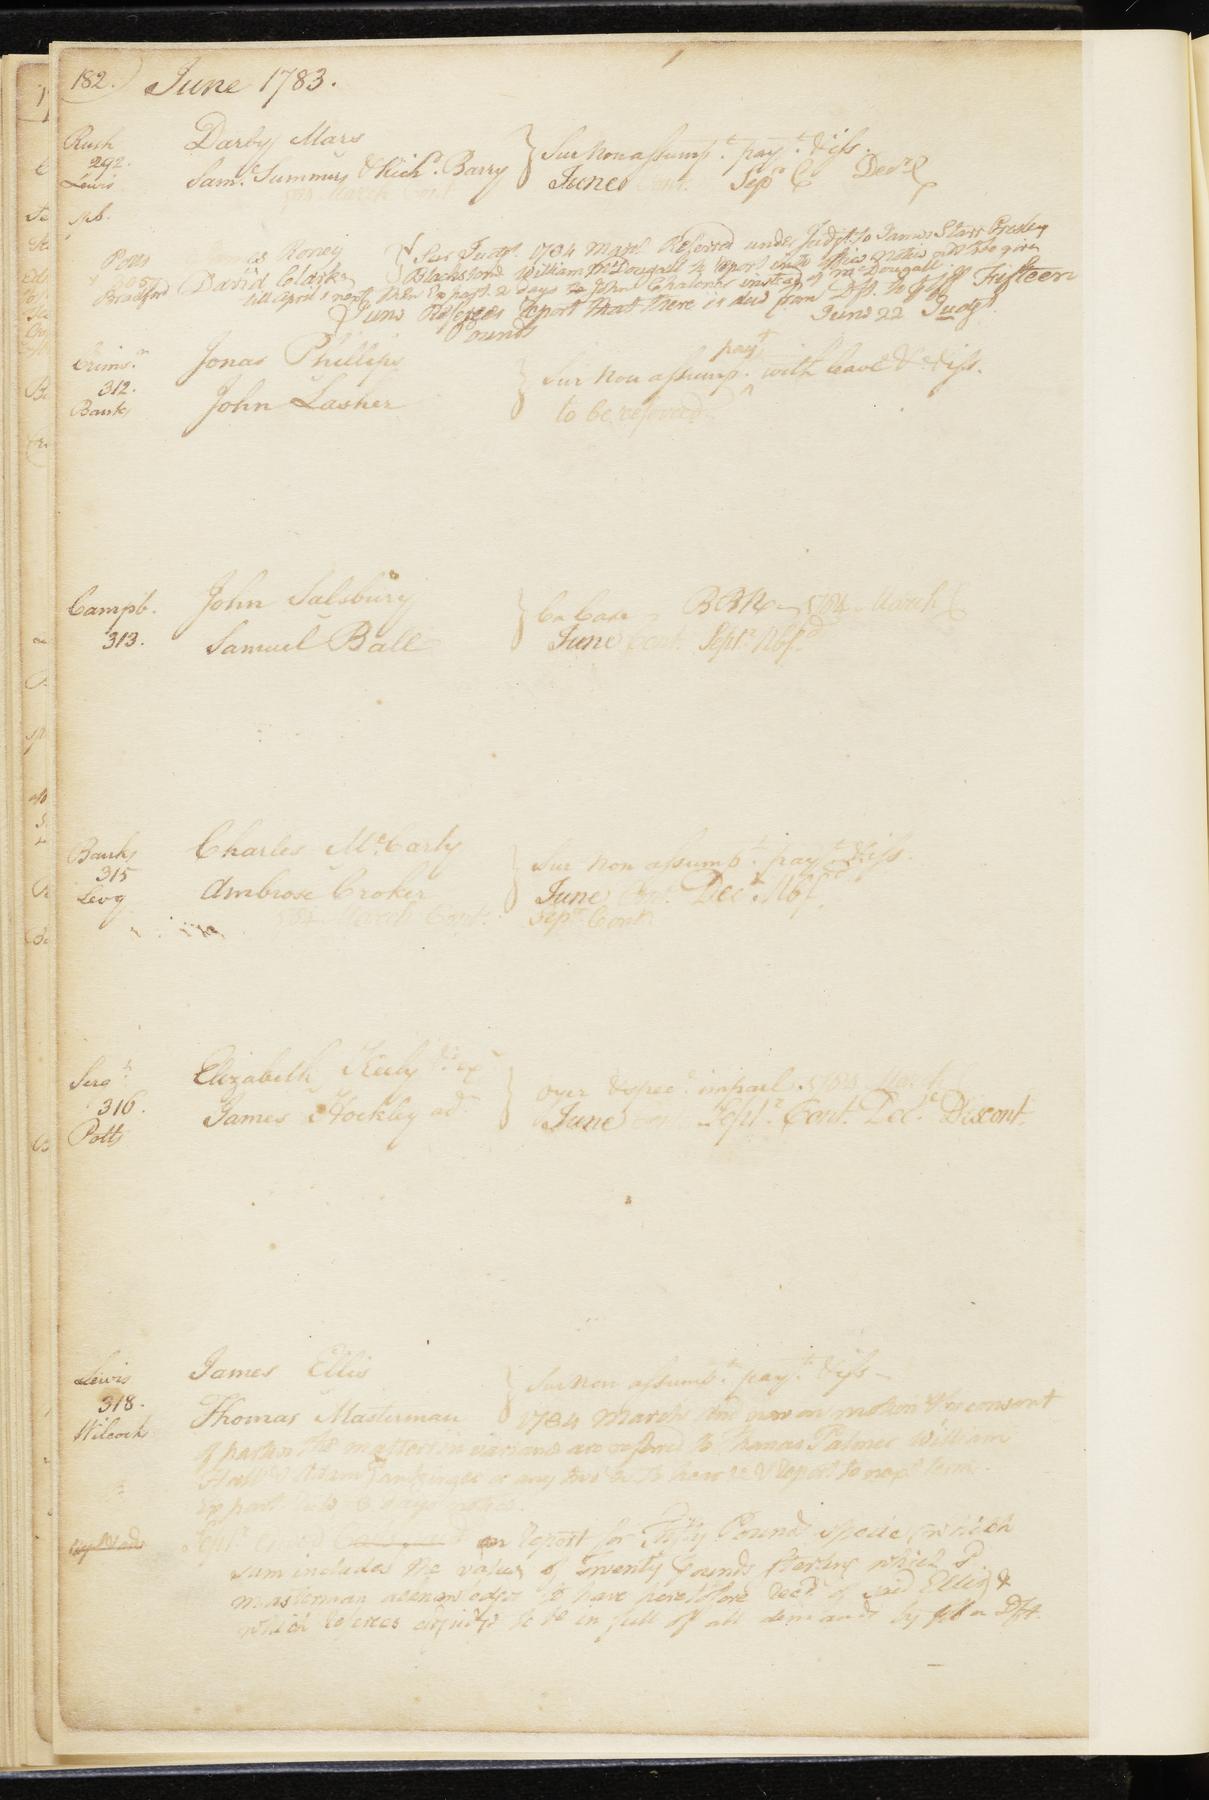 182. June 1783.
Rush Darby Mars } Sur Non assump.t pay.t & iss.
292.
Lewis Sam.l Summers & Rich.d Barry June Cont. Sep.r C Dec.r C
March Cont
Pots vs Roney } Sur Judgt. 1784 Mar. Referred under Judgt. to James Starr Presley
305
Bradford David Clark Blackstone William McDougall to report into Office Notice not to be given
till April 1 next then Ex part. 2 days John Chaloner instead of McDougall.
June Referees report that there is due from Dft. to pltff Fifteen
Pounds June 22 Judgt.
Jonas Phillips } Sur Non assump.t pay.t with leave &c & iss.
312.
Bank John Lasher to be referred
Campb. John Salsbury } Ca Case 1784 March C
313. Samuel Ball June Cont. Sept.r
Bank Charles Mc.Carty } Sur Non assump.t pay.t & iss.
315
Levy Ambrose Croker June Cont. Dec.r
1784 March Cont. Sep.r Cont
Serg.t Elizabeth Keely } Oyer & spec.l imparl. 1784 March
316.
Potts James Hockley ad.r June Cont. Sept.r Cont. Dec.r Discont.
Lewis James Ellis } Sur Non assump.t pay.t & iss
318.
Wilcock Thomas Masterman 1784 March And now on motion & by consent
of parties the matters in variance are referred to Thomas Palmer William
Hall & Adam or any two to hear &c & report to next term.
Ex parte rule days notice.
Sept. report for Fifty Pounds specie (which
sum includes the value of Twenty Pounds sterling which
Masterman acknowledges to have heretofore rec.d of said Ellis) &
which referees adjudge to be in full of all demands by pltf on Dft.